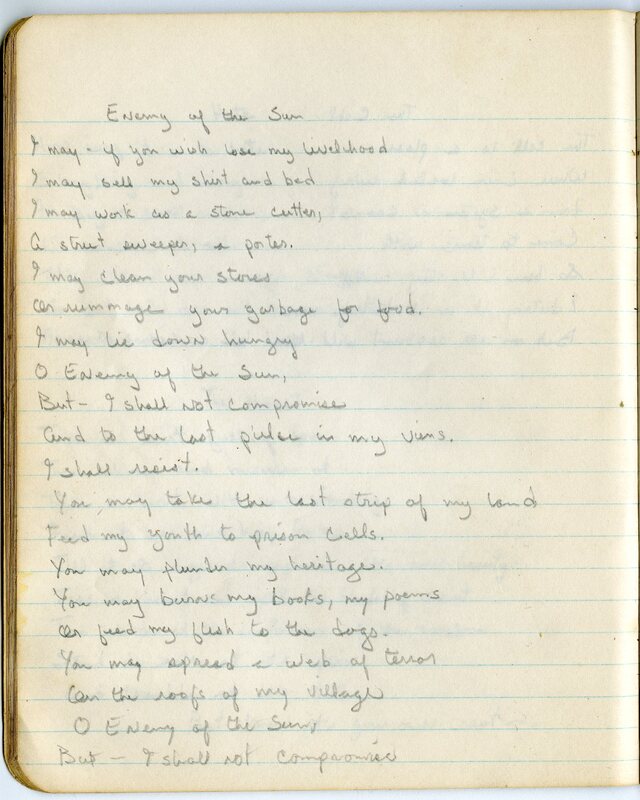 Enemy of the Sun
I may - if you wish lose my livelihood
I may sell my shirt and bed
I may work as a stone cutter,
A street sweeper, a porter.
I may clean your stores
Or rummage your garbage for food.
I may lie down hungry
O Enemy of the Sun,
But - I shall not compromise
And to the last pulse in my viens.
I shall resist.
You may take the last strip of my land
Feed my youth to prison cells.
You may plunder my heritage.
You may burn my books, my poems
Or feed my flesh to the dogs.
You may spread a web of terror
On the roofs of my village
O Enemy of the Sun,
But - I shall not compromise